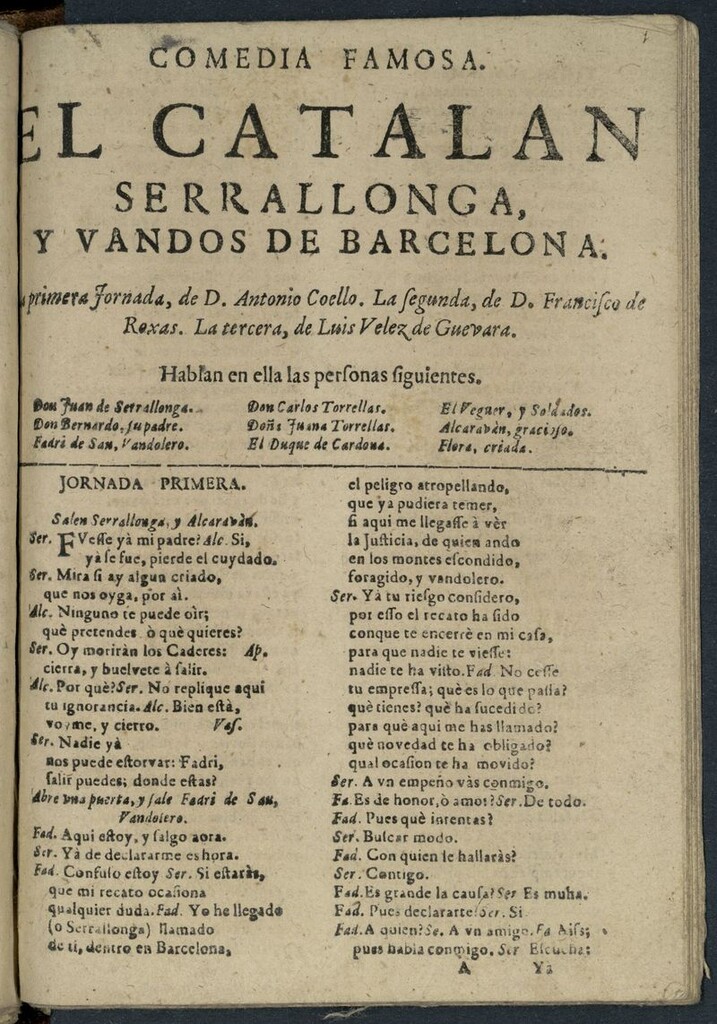 COMEDIA FAMOSA.
EL CATALAN
SERRALLONGA,
Y VANDOS DE BARCELONA.
primera Jornada, de D. Antonio Coello. La ſegunda, de D. Franciſco de
Roxas. La tercera, de Luis Velez de Guevara.
Hablan en ella las perſonas ſiguientes.
Don Juan de Serrallonga. Don Carlos Torrellas. El Veguer, y Soldados.
Don Bernardo, ſu padre. Doña Juana Torrellas. Alcaraván, gracioſo.
Fadri de Sau, Vandolero. El Duque de Cardona. Flora, criada.
JORNADA PRIMERA.
Salen Serrallonga, y Alcaravàn.
Ser. FVeſſe yà mi padre? Alc. Si,
yà ſe fue, pierde el cuydado.
Ser. Mira ſi ay algun criado,
que nos oyga, por aì.
Alc. Ninguno te puede oìr;
què pretendes, ò què quieres?
Ser. Oy moriràn los Caderes: Ap.
cierra, y buelvete à ſalir.
Alc. Por què? Ser. No replique aqui
tu ignorancia. Alc. Bien eſtà,
voyme, y cierro. Vaſ.
Ser. Nadie yà
nos puede eſtorvar: Fadri,
ſalir puedes; donde eſtas?
Abre una puerta, y ſale Fadri de Sau,
Vandolero.
Fad. Aqui eſtoy, y ſalgo aora.
Ser. Yà de declararme es hora.
Fad. Confuſo eſtoy Ser. Si eſtaràs,
que mi recato ocaſiona
qualquier duda. Fad. Yo he llegado
(o Serrallonga) llamado
de ti, dentro en Barcelona,
el peligro atropellando,
que yà pudiera temer,
ſi aqui me llegaſſe à vèr
la Juſticia, de quien ando
en los montes eſcondido,
foragido, y vandolero.
Ser. Yà tu rieſgo conſidero,
por eſſo el recato ha ſido
conque te encerrè en mi caſa,
para que nadie te vieſſe:
nadie te ha viſto. Fad. No ceſſe
tu empreſſa; què es lo que paſſa?
què tienes? què ha ſucedido?
para què aqui me has llamado?
què novedad te ha obligado?
qual ocaſion te ha movido?
Ser. A vn empeño vàs conmigo.
Fa. Es de honor, ò amor? Ser. De todo.
Fad. Pues què intentas?
Ser. Buſcar modo.
Fad. Con quien le hallaràs?
Ser. Contigo.
Fad. Es grande la cauſa? Ser Es mucha.
Fad. Pues declararte? Ser. Si
Fad. A quien? Se. A vn amigo. Fa Aiſs;
pues habla conmigo. Ser Eſcucha:
A Yà